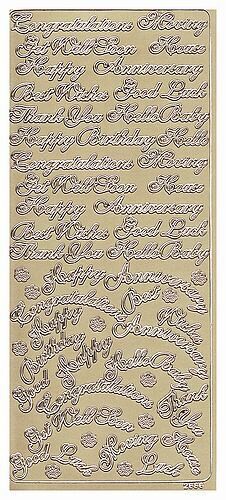 Congratulations Moving
Get Well Soon House
Happy Anniversary
Best Wishes Good Luck
Thank You Hello Baby
Happy Birthday Hello
Congratulations Moving
Get Well Soon House
Happy Anniversary
Best Wishes Good Luck
Thank You Hello Baby
Happy Anniversary
Congratulations Best Wishes
Happy Anniversary
Birthday Happy Hello Baby
Good Congratulations Thank
Get Well Soon You
Moving House
Good Luck Luck